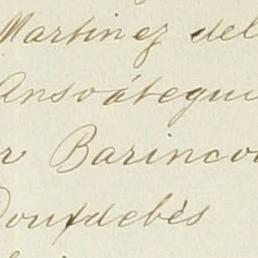 Martinez del
Ansoátegui
r Barinco
Douxdebès